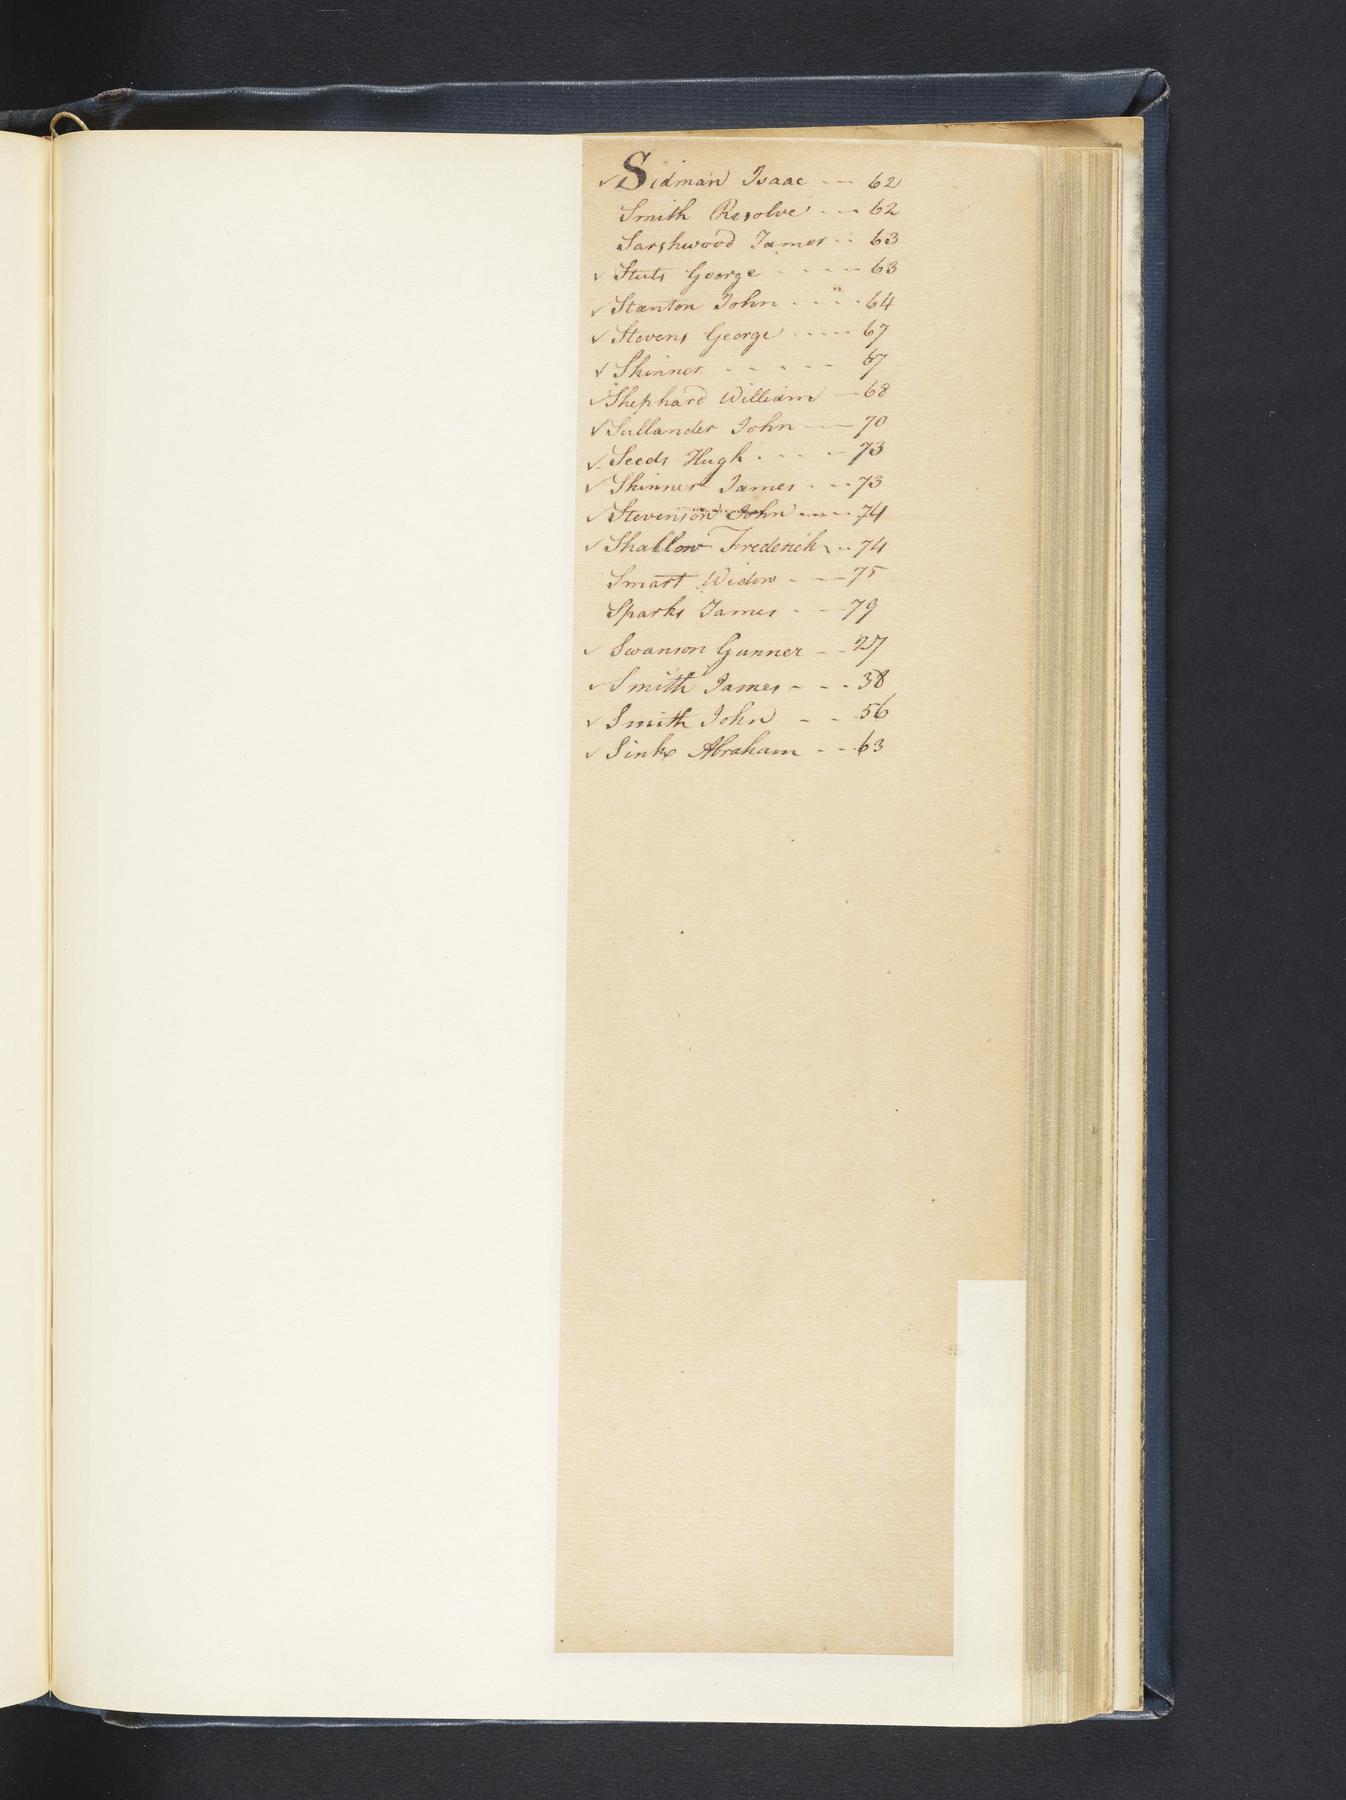 ✓ Sidman Isaac --- 62
Smith Resolve --- 62
Sarshwood James -- 63
✓ Stuts George ---- 63
✓ Stanton John ---- 64
✓ Stevens George ---- 67
✓ Skinner ----- 67
✓ Shephard William -- 68
✓ Sullander John --- 70
✓ Seeds Hugh ---- 73
✓ Skinner James --- 73
✓ Stevenson John ---- 74
✓ Shallow Frederick -- 74
Smart Widow --- 75
Sparks James --- 79
✓ Swanson Gunner -- 27
✓ Smith James --- 38
✓ Smith John -- 56
✓ Sink Abraham -- 63